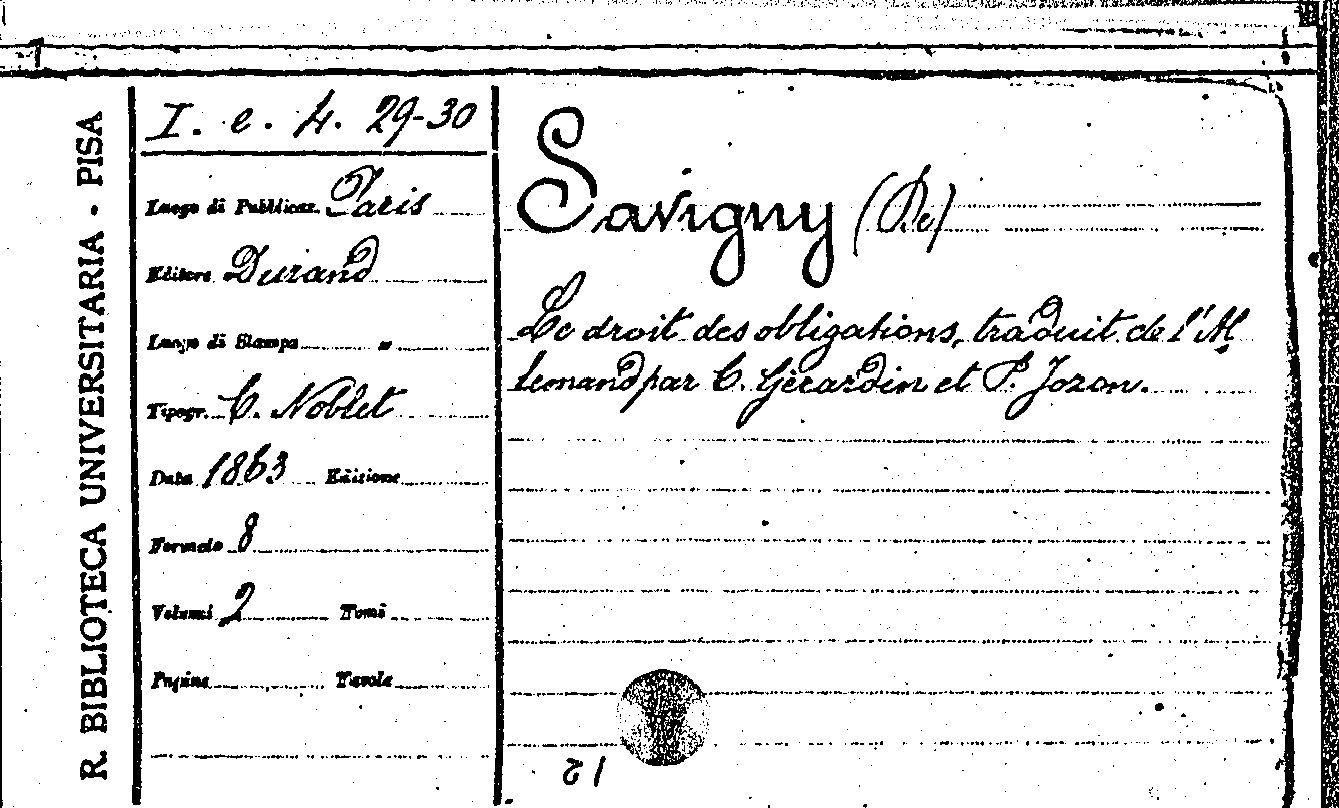 R. BIBLIOTECA UNIVERSITARIA - PISA
I. e. 4. 29-30
Luogo di Pubblicaz. Paris
Editore Durand
Luogo di Stampa "
Tipogr. C. Noblet
Data 1863 Edizione
Formato 8
Volumi 2 Tomi
Pagine Tavole
Savigny (De)
Le droit des obligations, traduit de l'Al
lemand par C. Gérardin et P. Jozon.
12